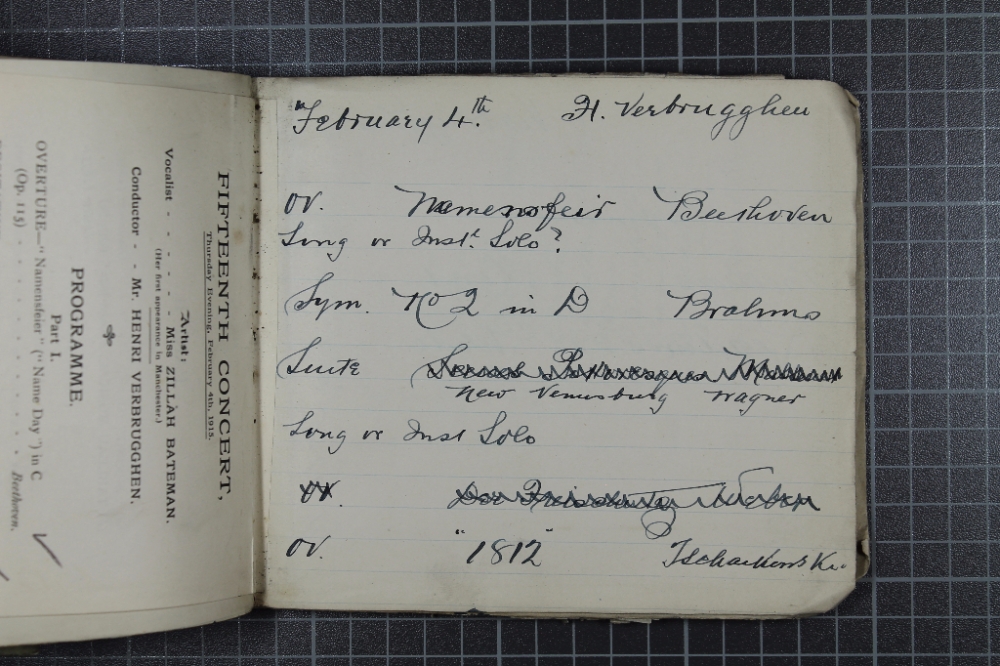 FIFTEENTH CONCERT,
Thursday Evening, February 4th, 1915.
Artist:
Vocalist - - - - Miss ZILLAH BATEMAN.
(Her first appearance in Manchester.)
Conductor - - Mr. HENRI VERBRUGGHEN.
PROGRAMME.
Part I.
OVERTURE—"Namensfeier" ("Name Day") in C
(Op. 115) - - - - - - - - Beethoven.
"February 4.th H. Verbrugghen
OV. Namensfeir Beethoven
Song or Inst. Solo?
Sym. No 2 in D Brahms
Suite Scenes Pittoresques Massenet
New Venusburg Wagner
Song or Inst Solo
OV. Der Freischutz Weber
OV. "1812" Tschaikowski.